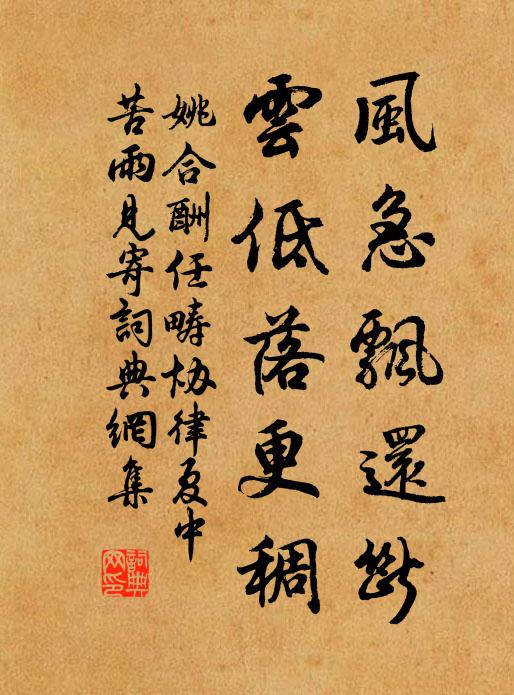 風急飄還斷
雲低落更稠
姚合酬任疇协律夏中
苦雨見寄詞典網集
詞典
网印